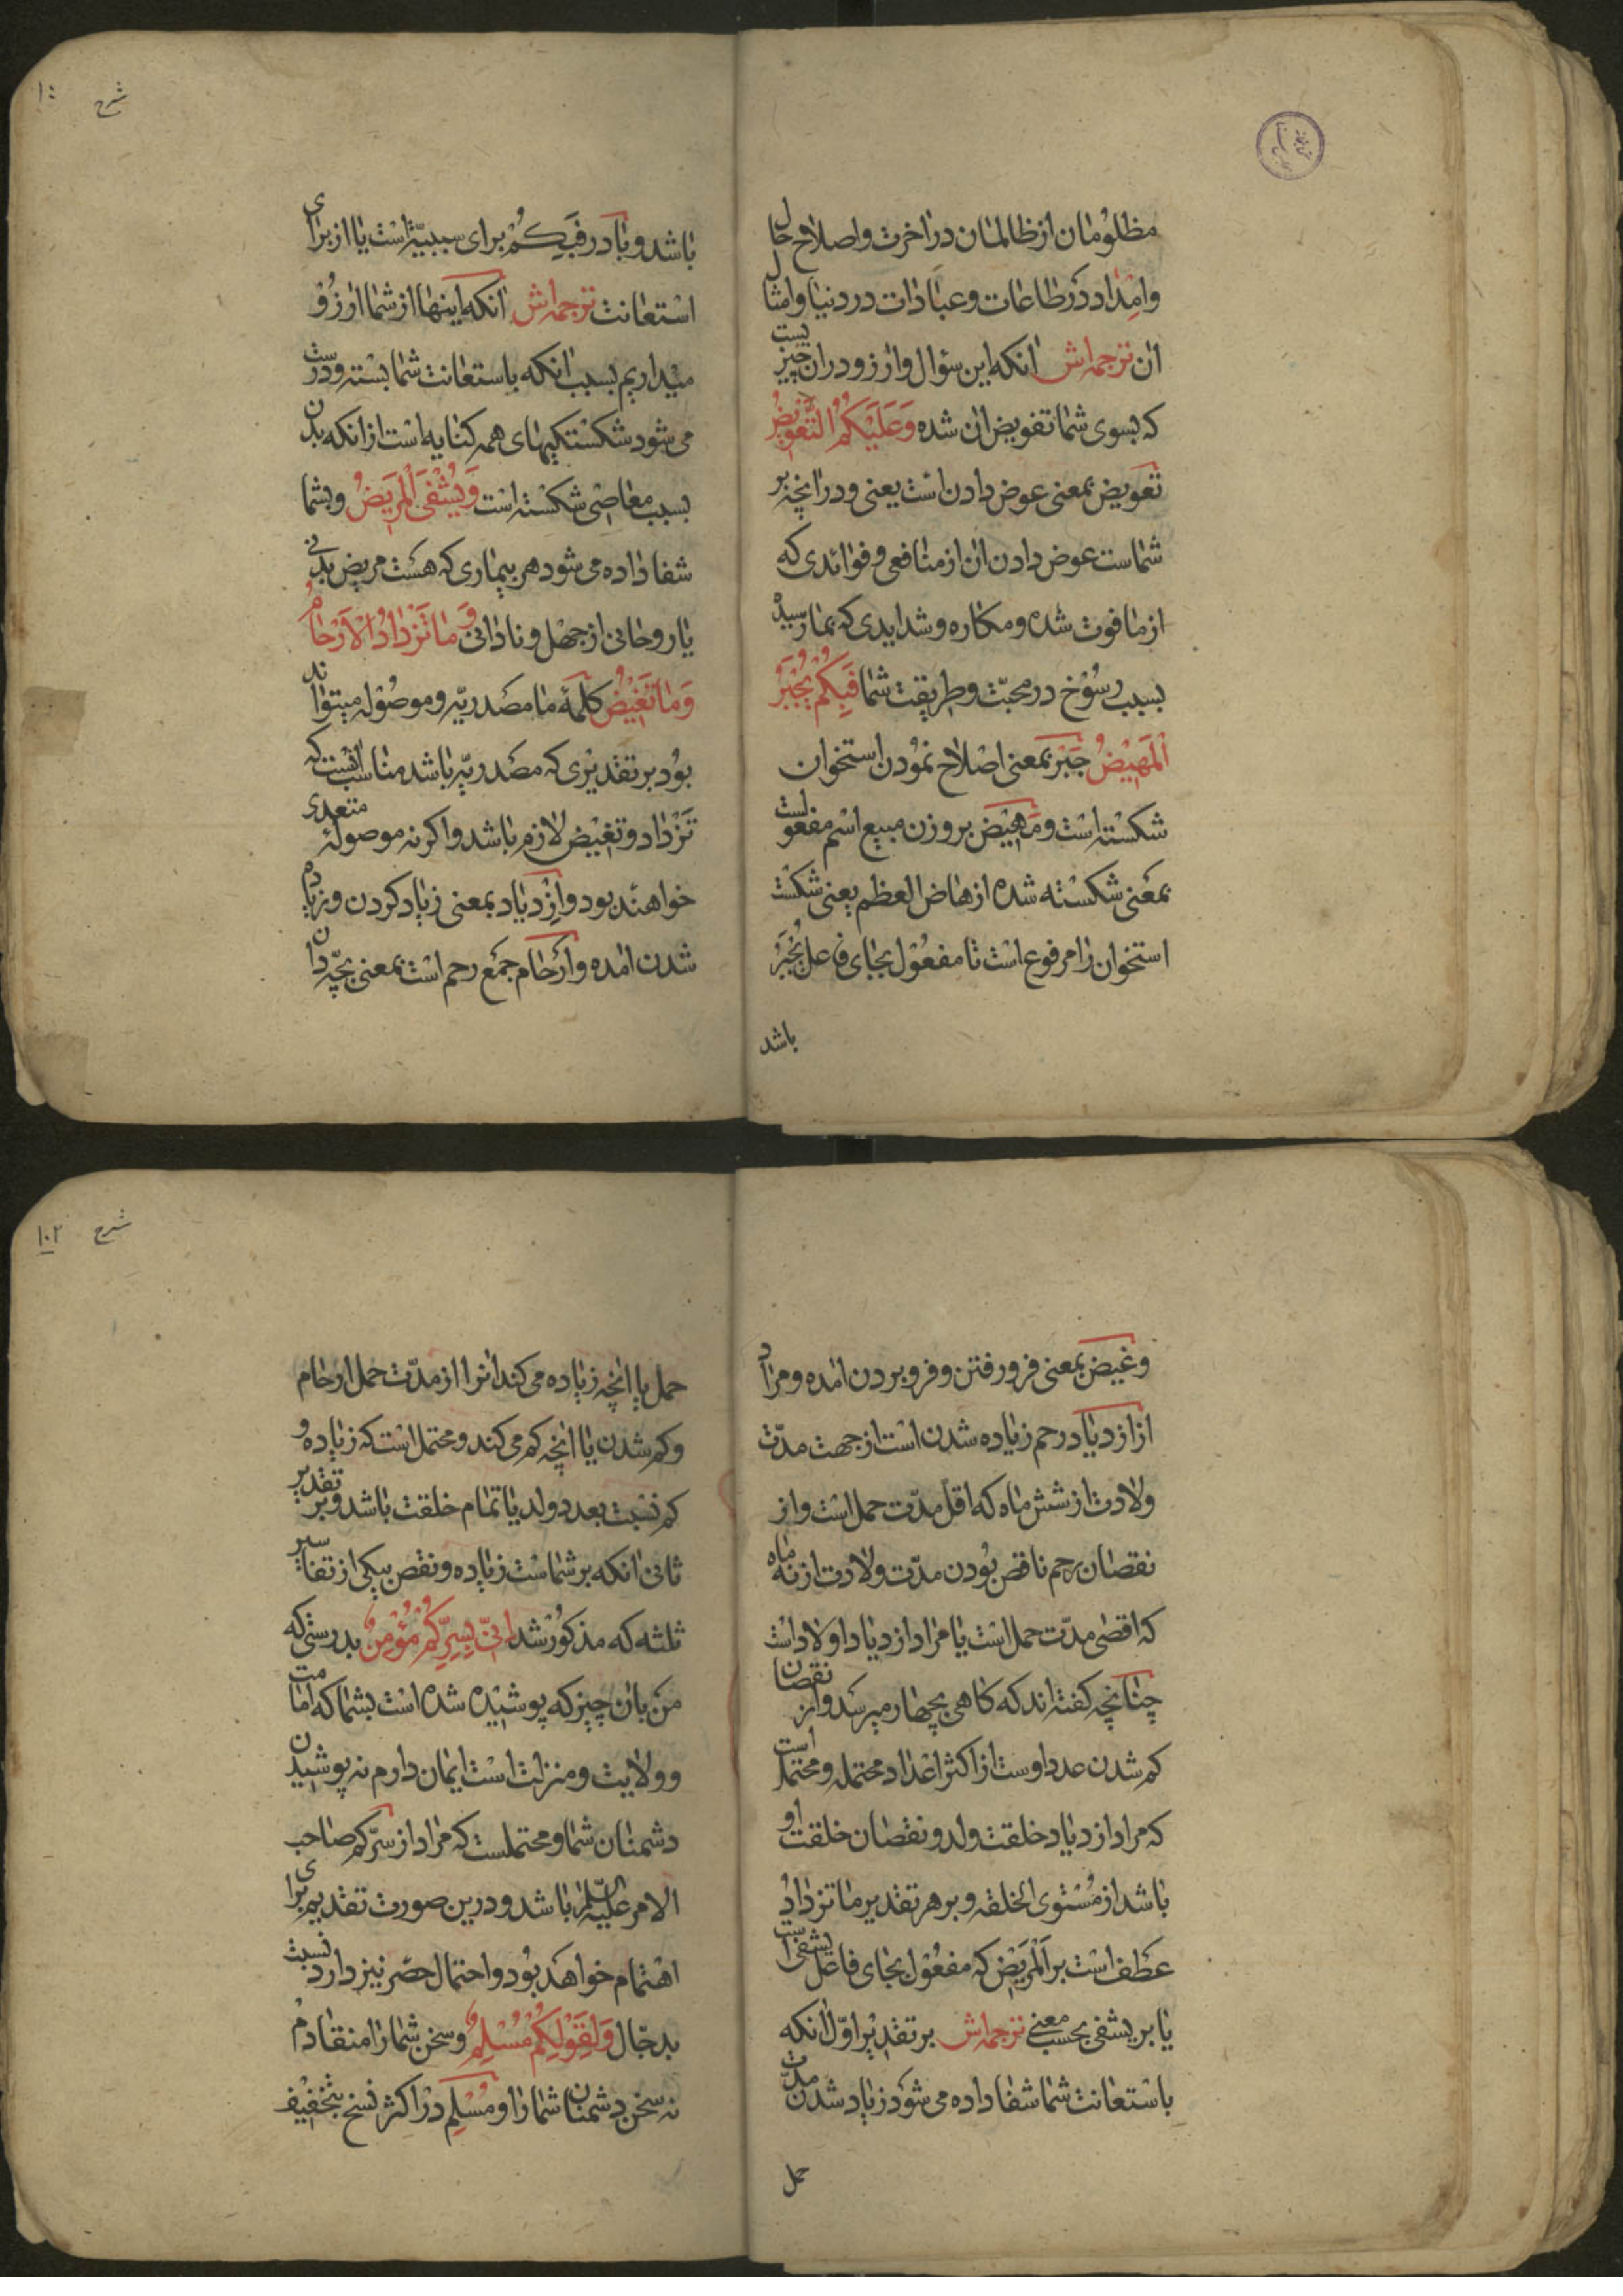 مظلومان از ظالمان در اخرت و اصلاح حال
و امداد در طاعات و عبادات در دنیا و امثال
ان ترجمه اش انکه این سؤال و ارزو در ان چیزیست
که بسوی شما تفویض ان شده وَعَلَيْكُمُ التَّعْوِيضُ
تعویض بمعنی عوض دادن است یعنی و در انچه بر
شماست عوض دادن ان از منافعی و فوائدی که
از ما فوت شده و مکاره و شدایدی که بما رسیده
بسبب رسوخ در محبّت و طریقت شما فَبِكُمْ يُجْبَرُ
الْمَهِيْضُ جبر بمعنی اصلاح نمودن استخوان
شکسته است و مهیض بر وزن مبیع اسم مفعولست
بمعنی شکسته شده از هاض العظم یعنی شکست
استخوان را مرفوع است تا مفعول بجای فاعل یُجْبَرُ
باشد
شرح
باشد و با در فَبِكُمْ برای سببیّة است یا از برای
استعانت ترجمه اش انکه اینها از شما ارزو
میداریم بسبب انکه باستعانت شما بسته و درست
می شود شکستکیهای همه کنایه است از انکه بدن
بسبب معاصی شکسته است وَيُشْفَى الْمَرِيضُ و بشما
شفا داده می شود هر بیماری که هست مریض بدنی
یا روحانی از جهل و نادانی وَمَا تَزْدَادُ الْاَرْحَامُ
وَمَا تَغِيْضُ کلمهٔ ما مصدریّه و موصوله میتواند
بود بر تقدیری که مصدریّه باشد مناسب انست که
تزداد و تغیض لازم باشد و اکر نه موصوله متعدی
خواهند بود و ازدیاد بمعنی زیاد کردن و زیاده
شدن امده و ارحام جمع رحم است بمعنی بچّه دان
وغیض بمعنی فرو رفتن و فرو بردن امده و مراد
از ازدیاد رحم زیاده شدن است از جهت مدّت
ولادت از شش ماه که اقل مدّت حمل است و از
نقصان رحم ناقص بودن مدّت ولادت از نه ماه
که اقصی مدّت حمل است یا مراد ازدیاد اولاد است
چنانچه کفته اند که کاهی بچهار میرسد و از نقصان
کم شدن عدد اوست از اکثر اعداد محتمله و محتمل است
که مراد ازدیاد خلقت ولد و نقصان خلقت او
باشد از مستوی الخلقه و بر هر تقدیر ما تزداد
عطف است بر الْمَرِيض که مفعول بجای فاعل یشفی است
یا بر یشفی بحسب معنی ترجمه اش بر تقدیر اوّل انکه
باستعانت شما شفا داده می شود زیاد شدن مدّت
حمل
شرح ۱۰۲
حمل یا انچه زیاده می کند انرا از مدّت حمل ارحام
و کم شدن یا انچه کم می کند و محتمل است که زیاده و
کم نسبت بعدد ولد یا تمام خلقت باشد و بر تقدیر
ثانی انکه بر شماست زیاده و نقص بیکی از تفاسیر
ثلثه که مذکور شد اِنِّي بِسِرِّكُمْ مُؤْمِنٌ بدرستی که
من بان چیز که پوشیده شده است بشما که امامت
و ولایت و منزلت است ایمان دارم نه پوشیدن
دشمنان شما و محتملست که مراد از سرّکم صاحب
الامر علیه السّلم باشد و درین صورت تقدیم برای
اهتمام خواهد بود و احتمال حصر نیز دارد نسبت
بدجّال وَلِقَوْلِكُمْ مُسْلِمٌ و سخن شما را منقادم
نه سخن دشمنان شما را و مُسْلِم در اکثر نسخ بتخفیف